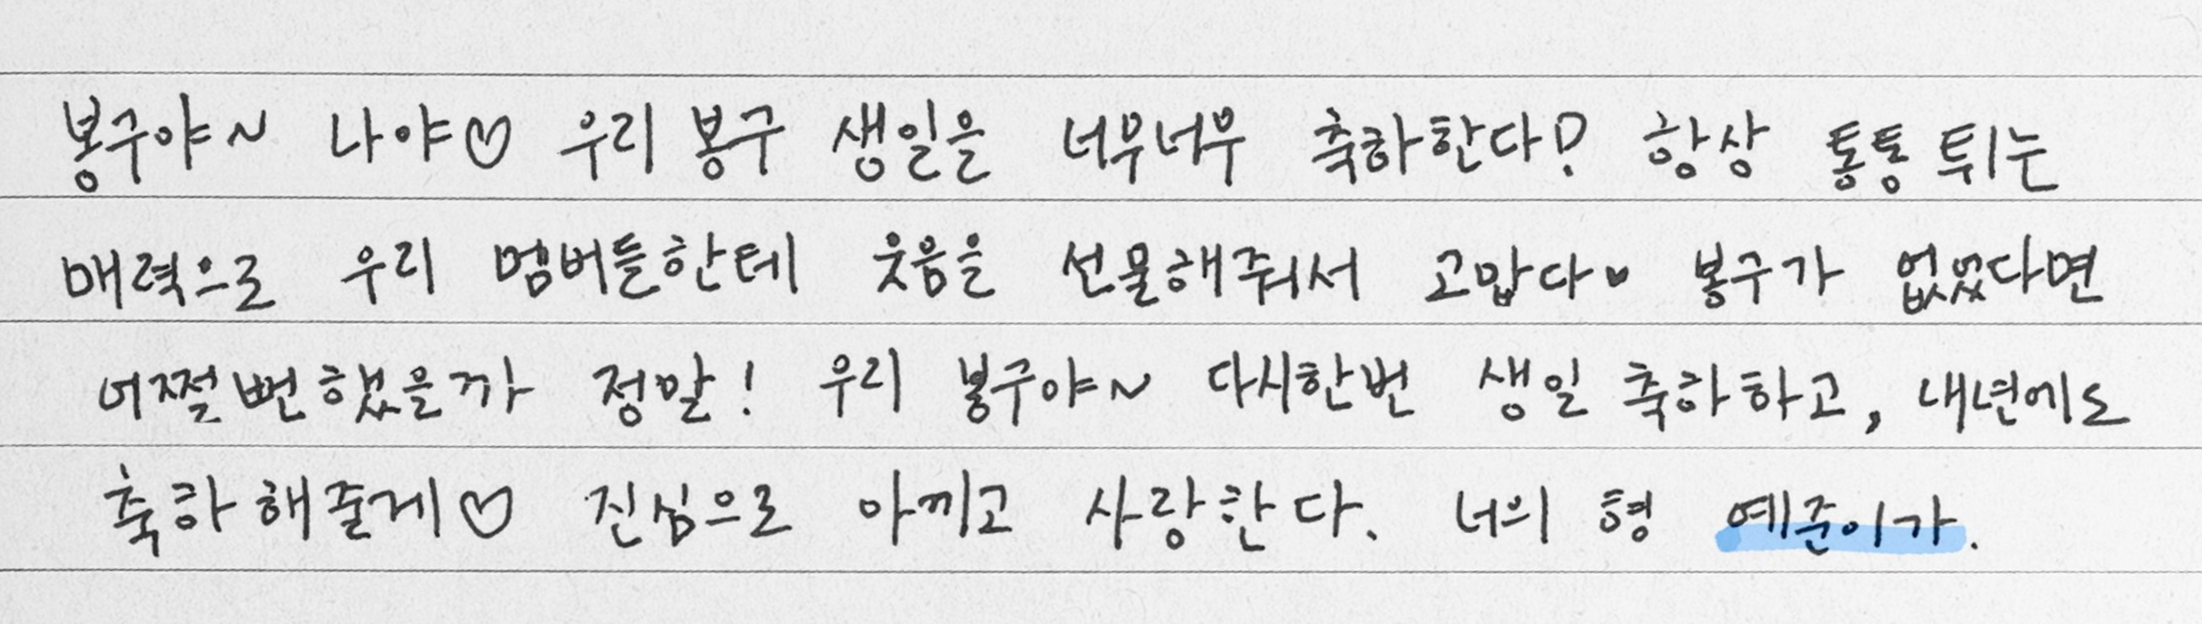 봉구야~ 나야♡ 우리 봉구 생일을 너무너무 축하한다! 항상 통통 튀는
매력으로 우리 멤버들한테 웃음을 선물해줘서 고맙다♥ 봉구가 없었다면
어쩔뻔했을까 정말! 우리 봉구야~ 다시한번 생일 축하하고, 내년에도
축하해줄게♡ 진심으로 아끼고 사랑한다. 너의 형 예준이가.